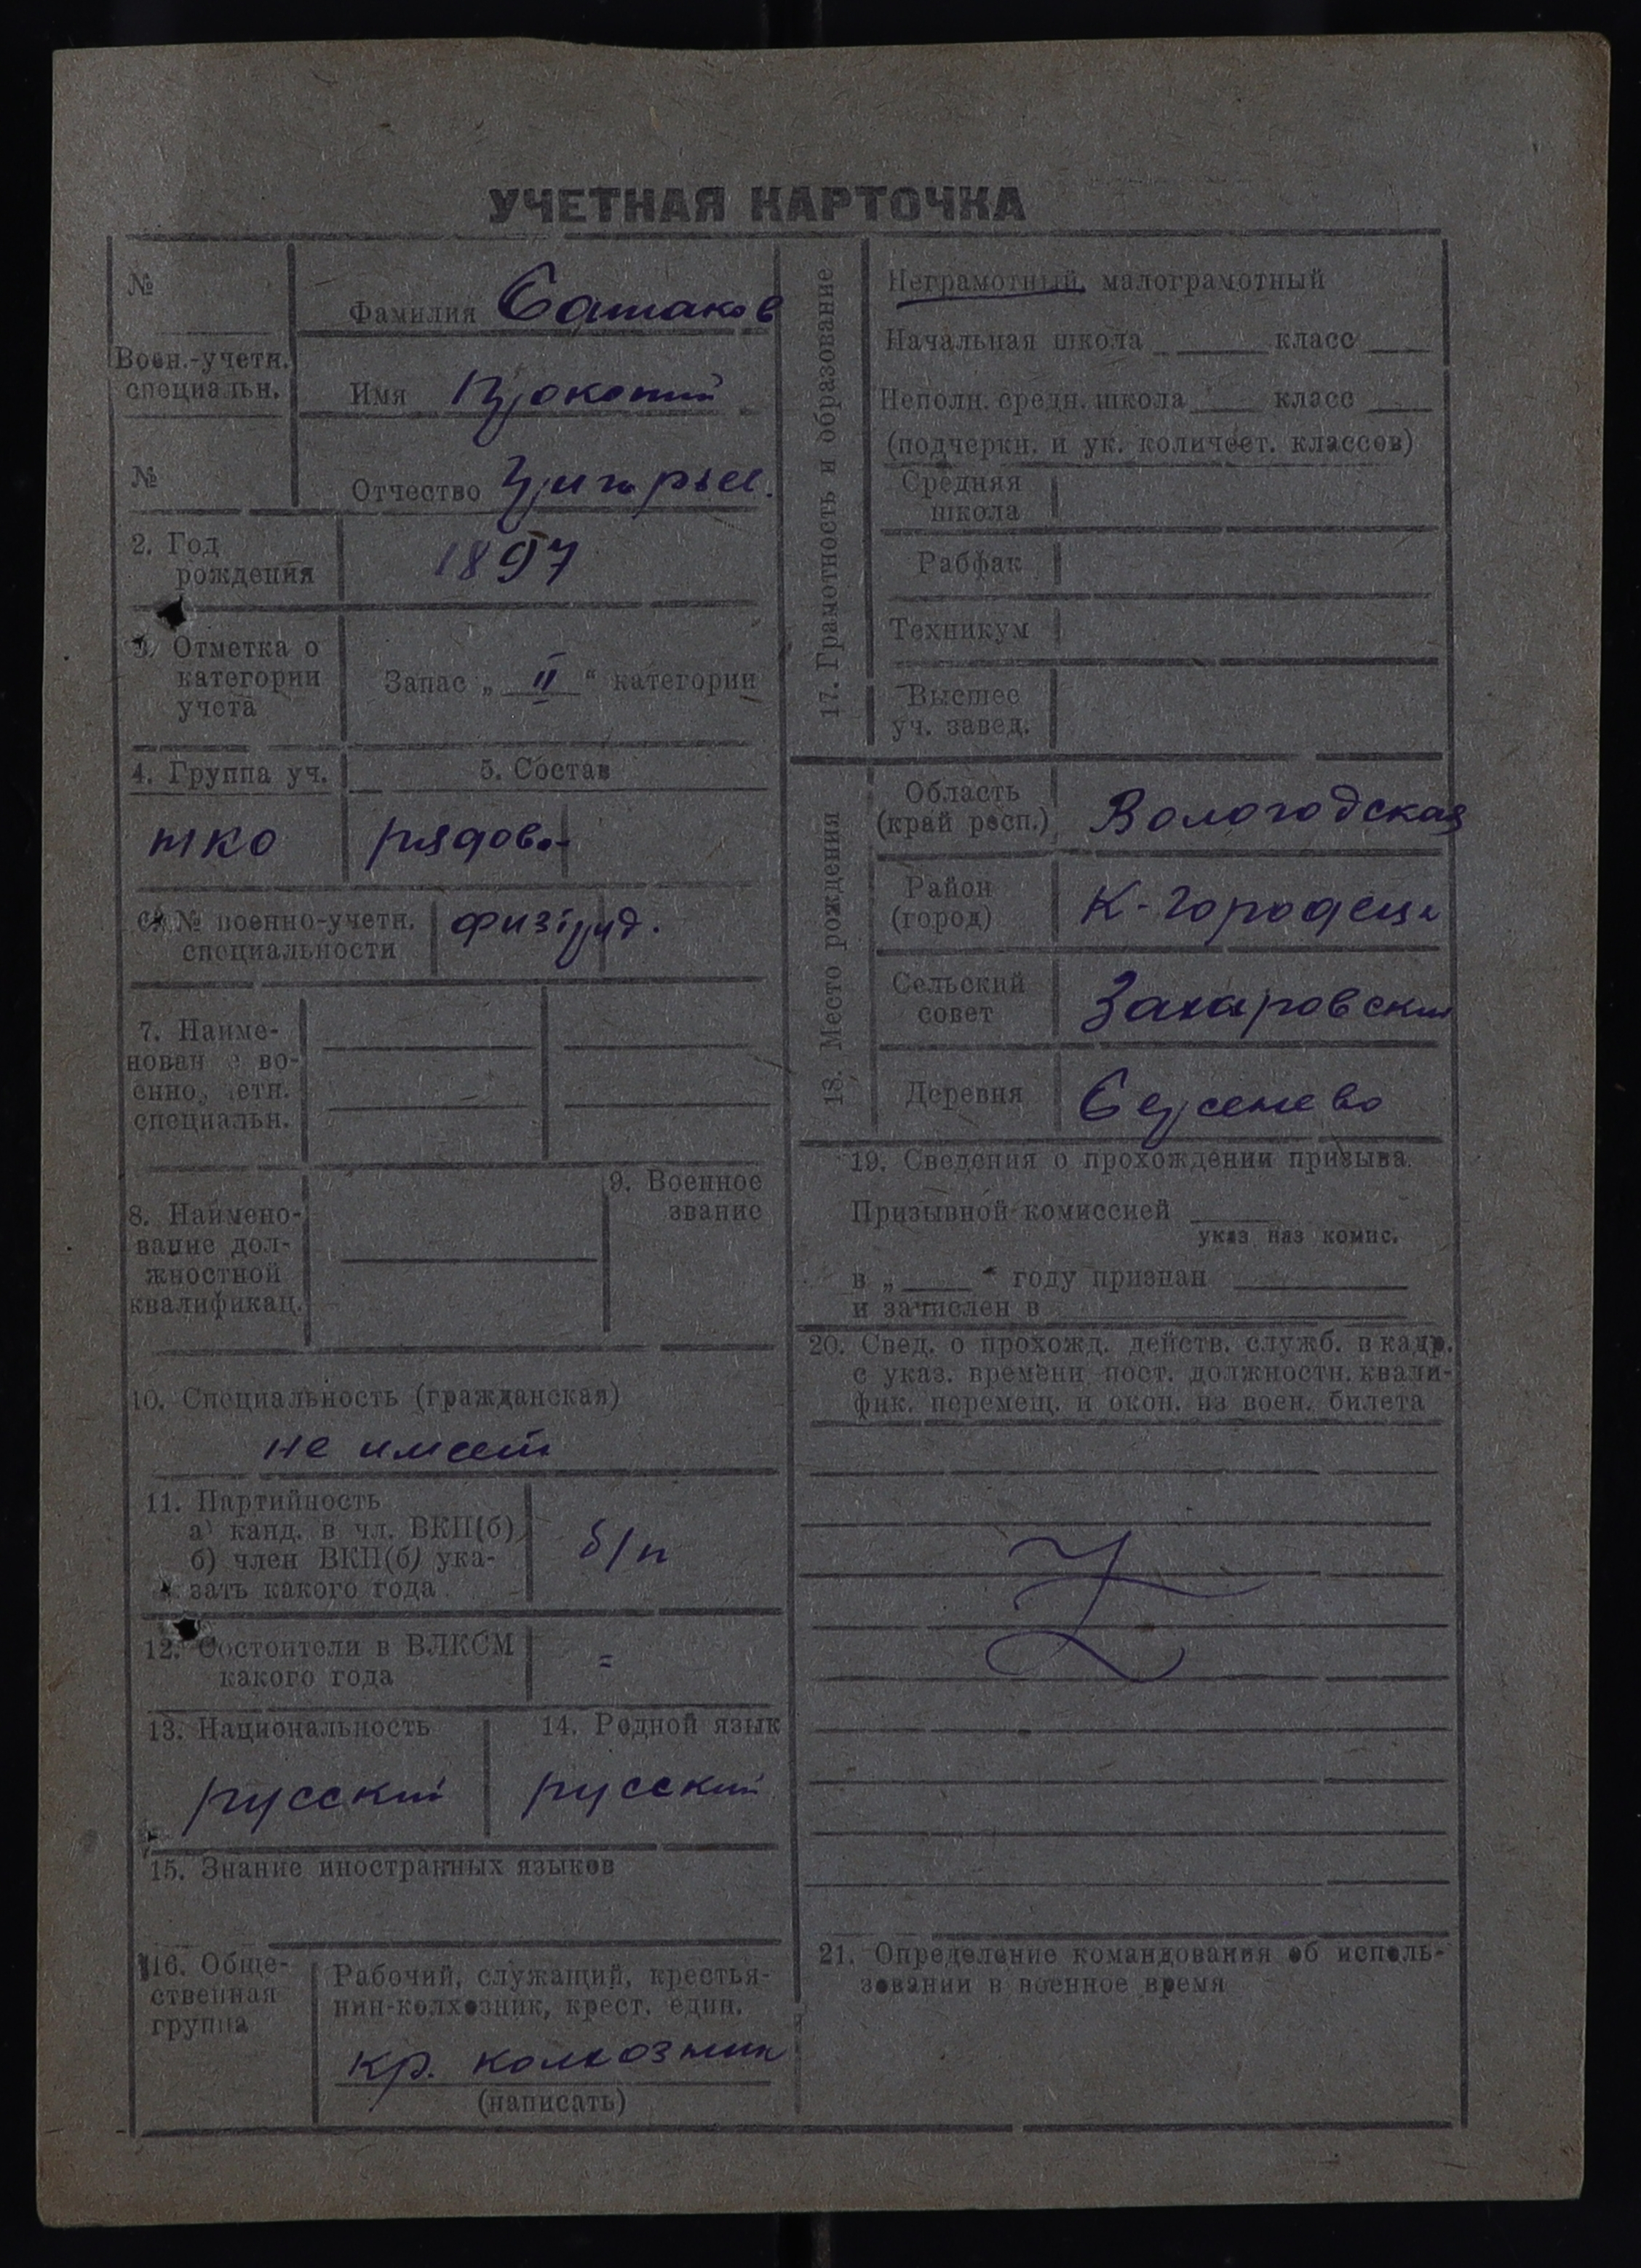 УЧЕТНАЯ КАРТОЧКА
№
Воен.-учетн.
специальн.
№
Фамилия
Имя Прокопий
Отчество Григорьев.
2. Год
рождения
1897
3. Отметка о
категории
учета
Запас „ II “ категории
4. Группа уч.
тко
5. Состав
рядов.
6. № военно-учетн.
специальности
физтруд.
7. Наиме-
нован е во-
енно, етн.
специальн.
8. Наимено-
вание дол-
жностной
квалификац.
9. Военное
звание
10. Специальность (гражданская)
не имеет
11. Партийность
а) канд. в чл. ВКП(б)
б) член ВКП(б) ука-
зать какого года
б/п
12. Состоители в ВЛКСМ
какого года
=
13. Национальность
русский
14. Родной язык
русский
15. Знание иностранных языков
16. Обще-
ственная
группа
Рабочий, служащий, крестья-
нин-колхозник, крест. един.
кр. колхозник
(написать)
17. Грамотность и образование
Неграмотный, малограмотный
Начальная школа класс
Неполн. средн. школа класс
(подчеркн. и ук. количест. классов)
Средняя
школа
Рабфак
Техникум
Высшее
уч. завед.
18. Место рождения
Область
(край респ.)
Вологодская
Район
(город)
К-Городецк
Сельский
совет
Захаровский
Деревня
19. Сведения о прохождении призыва
Призывной комиссией
указ наз комис.
в „ “ году признан
и зачислен в
20. Свед. о прохожд. действ. служб. в кадр.
с указ. времени пост. должности, квали-
фик. перемещ. и окон. из воен. билета
Z
21. Определение командования об исполь-
зовании в военное время